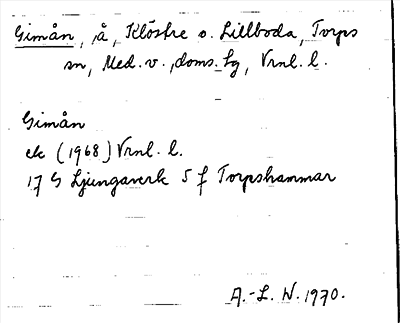 Gimån, å, Klöstre o. Lillboda, Torps
sn, Med. v. doms. lg, Vrnl. l.
Gimån
ek (1968) Vrnl. l.
17 G Ljungaverk 5 f Torpshammar
A.-L. W. 1970.